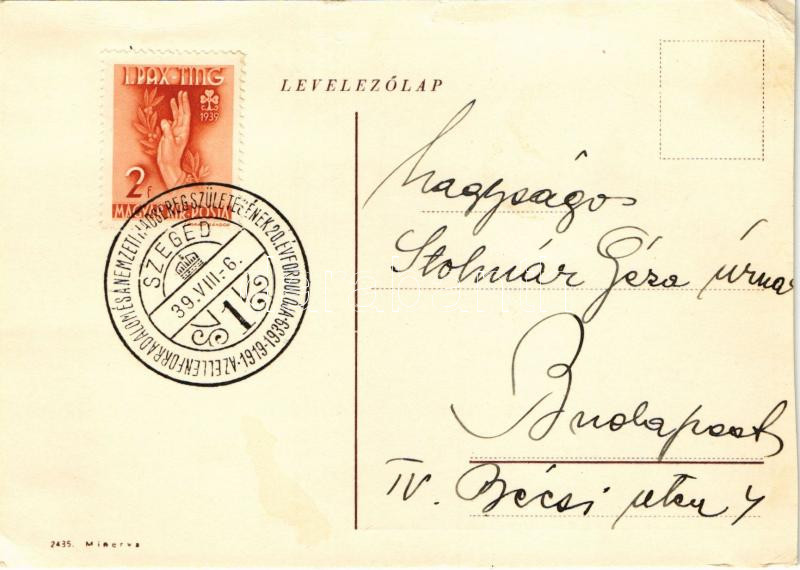 I. PAX-TING
1939
2 f
MAGYAR KIR. POSTA
LEVELEZŐLAP
1919-1939 · AZ ELLENFORRADALOM ÉS A NEMZETI HADSEREG SZÜLETÉSÉNEK 20. ÉVFORDULÓJA
SZEGED
39.VIII-6.
1
Nagyságos
Stolmár Géza úrnak
Budapest
IV. Bécsi utca 4
2435. Minerva